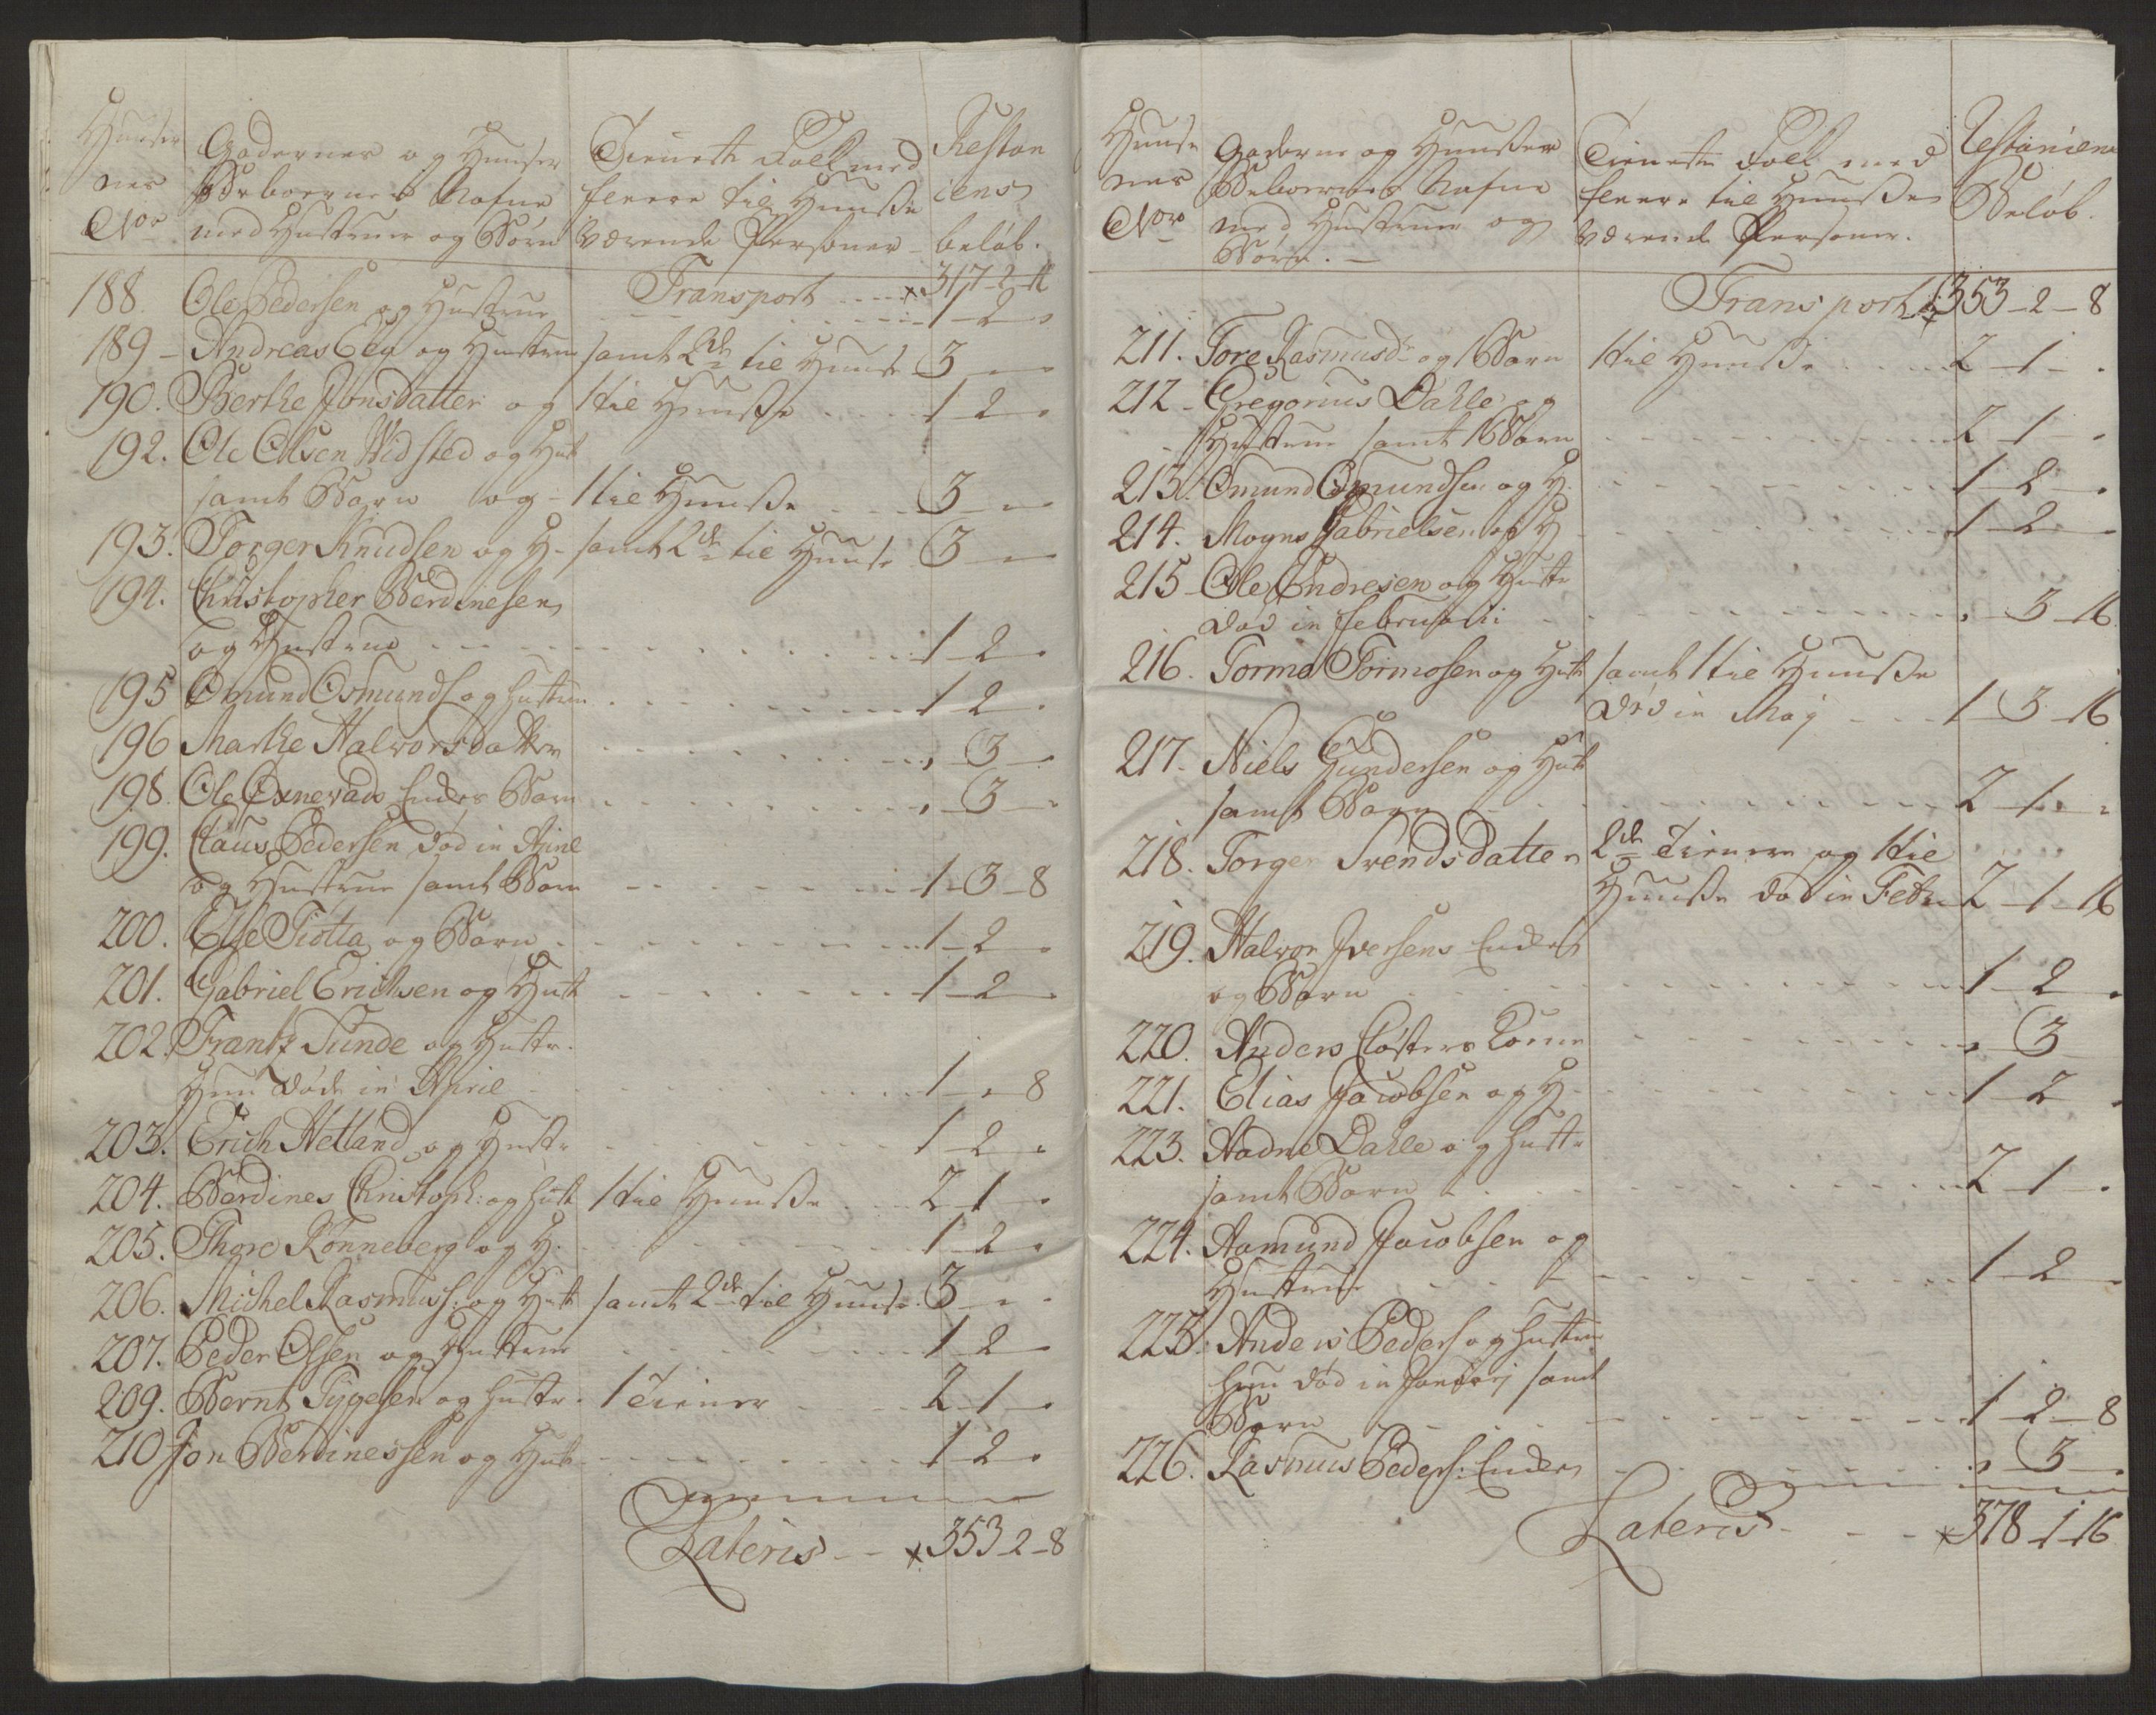 Huuser
nes
No
Gadernes og Huuser
Beboernes Nafne
med Hustruer og Börn
Tieneste Folk med
fleere til Huusse
værende Personer
Restan
ciens
belöb.
Transport 317-2-16
188. Ole Pedersen og Hustrue 1-2-
189 - Andreas Elg og Hustrue samt 2de til Huuse 3 - -
190. Berthe Jonsdatter og 1 til Huusse 1-2-
192. Ole Olsen Widsted og Hust
samt Barn og - 1 til Huusse 3 - -
193. Torger Knudsen og H- samt 2de til Huuse 3 - -
194. Christopher Berdinesen
og Hustrue 1-2-
195 Omund Osmunds og Hustrue 1-2-
196 Marthe Halvorsdatter - 3 -
198. Ole Enkes Barn - 3 -
199. Claus Pedersen död in April
og Hustrue samt Barn 1-3-8
200. Else Tiötta og Barn 1-2-
201. Gabriel Erichsen og Hust 1-2-
202. Frantz Sunde og Hustr.
Hun död in April 1 - 8
203. Erich Hetland og Hustr 1-2-
204. Berdines Christoph: og Hust 1 til Huusse 2-1-
205. Thore Rönneberg og H. 1-2-
206. Michel Rasmuss: og Hust samt 2de til Huuse 3 - -
207. Peder Olsen og Hustrue 1-2-
209. Bernt Tygesen og Hustr. 1 Tiener 2-1-
210 Jon Berdinessen og Hust 1-2-
Lateris 353-2-8
Huuse
nes
No
Gaderne og Huusser
Beboernes Nafne
med Hustruer og
Börn.
Tieneste Folk med
fleere til Huusse
værende Personer.
Restanciens
Belöb.
Transport 353-2-8
211. Tore Rasmusd: og 1 Barn 1 til Huusse 2-1-
212 - Gregorius Dahle og
Hustrue samt 1 Barn 2-1-
213. Omund Omundsen og H. 1-2-
214. Mogns Gabrielsen og H 1-2-
215 - Ole Endresen og Hustr
död in Februarii - 3-16
216. Tormo Tormosen og Hust samt 1 til Huusse
död in Maj 1-3-16
217 - Niels Gundersen og Hust
samt Barn 2-1-
218. Torger Svendsdatter 2de Tienere og 1 til
Huusse död in Febr 2-1-16
219. Halvor Iversens Enke
og Barn 1-2-
220. Anders Clösters Kone - 3
221. Elias Jacobsen og H. 1-2-
223. Aadne Dahle og Hustr
samt Barn 2-1-
224. Aamund Jacobsen og
Hustrue 1-2-
225. Anders Peders og Hustrue
hun död in Januarj samt
Barn 1-2-8
226. Rasmus Peders: Enke - 3 -
Lateris 378-1-16